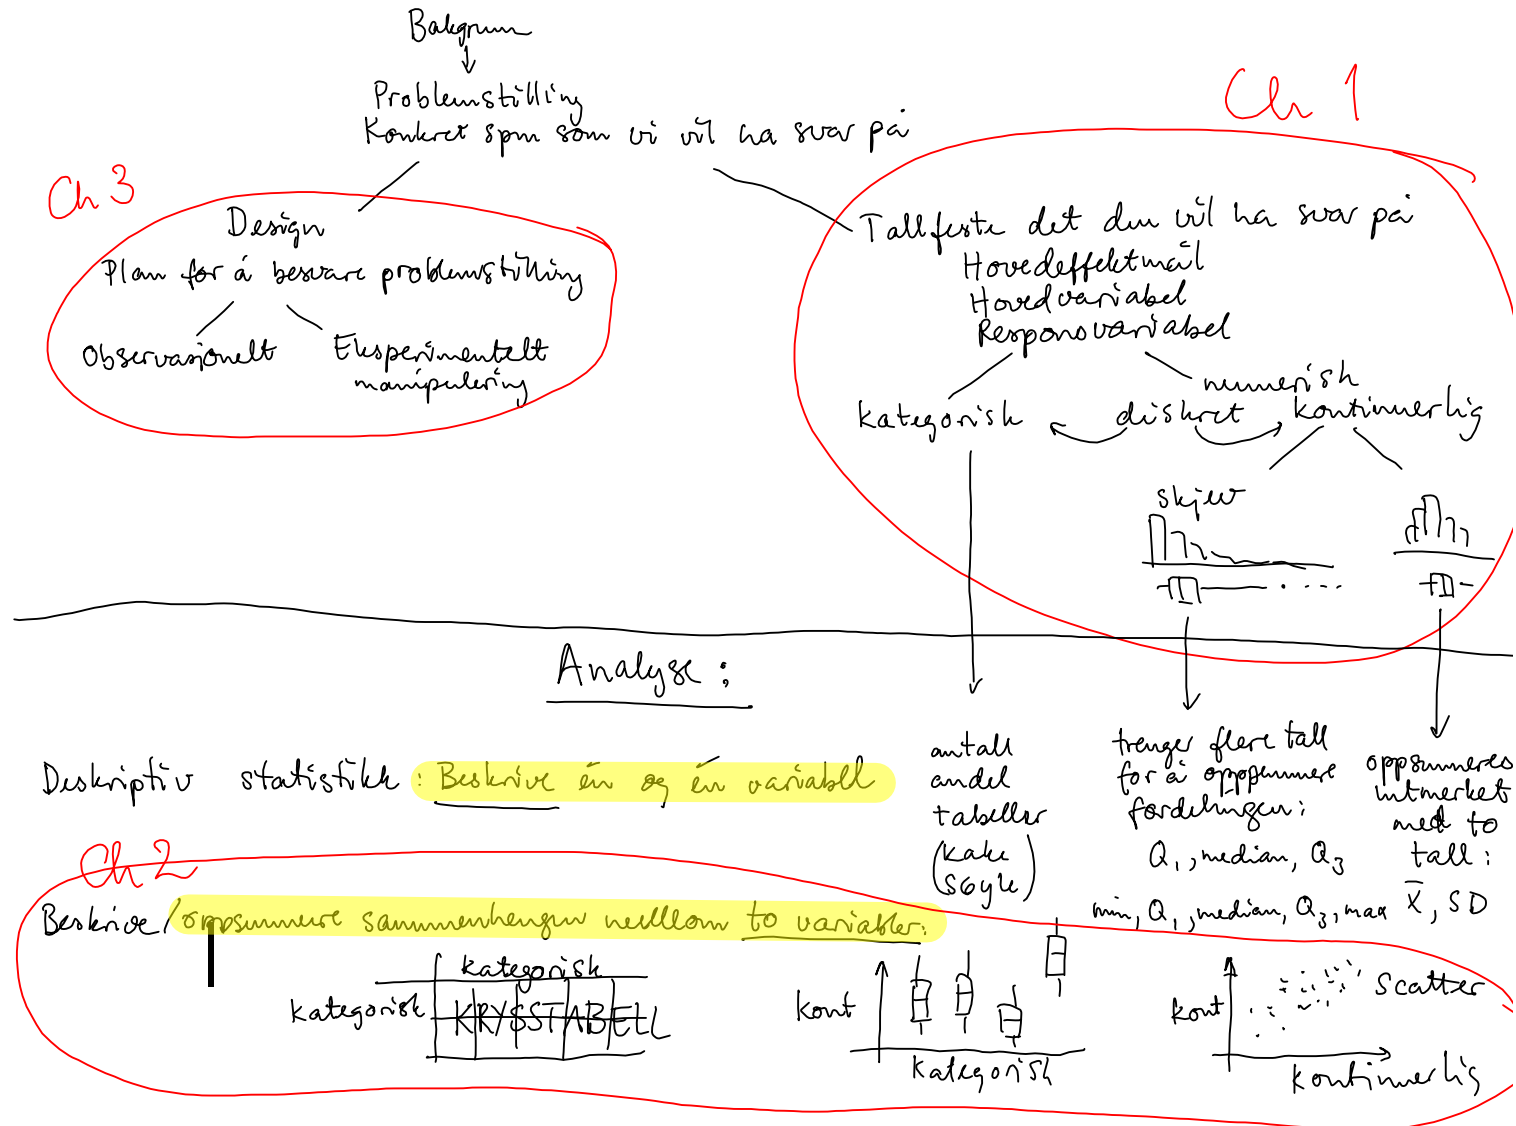 Bakgrunn
Problemstilling
Konkret spm som vi vil ha svar på
Ch 1
Ch 3
Design
Plan for å besvare problemstilling
Observasjonelt
Eksperimentelt
manipulering
Tallfeste det du vil ha svar på
Hovedeffektmål
Hovedvariabel
Responsvariabel
numerisk
kategorisk diskret kontinuerlig
skjev
Analyse:
Deskriptiv statistikk: Beskrive én og én variabel
antall
andel
tabeller
(kake
søyle)
trenger flere tall
for å oppsummere
fordelingen:
Q1, median, Q3
min, Q1, median, Q3, max
oppsummeres
utmerket
med to
tall:
X̄, SD
Ch 2
Beskrive/oppsummere sammenhengen mellom to variabler:
kategorisk
kategorisk
KRYSSTABELL
kont
kategorisk
kont
scatter
kontinuerlig